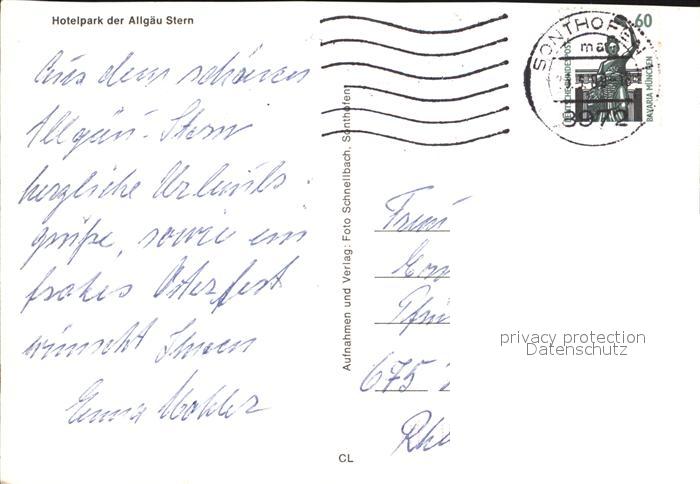 Hotelpark der Allgäu Stern
Aus dem schönen
Allgäu-Stern
herzliche Urlaubs
grüße, sowie ein
frohes Osterfest
wünscht Ihnen
Erna
Aufnahmen und Verlag: Foto Schnellbach, Sonthofen
CL
SONTHOFEN
8972
60
DEUTSCHE BUNDESPOST
BAVARIA MÜNCHEN
675
privacy protection
Datenschutz